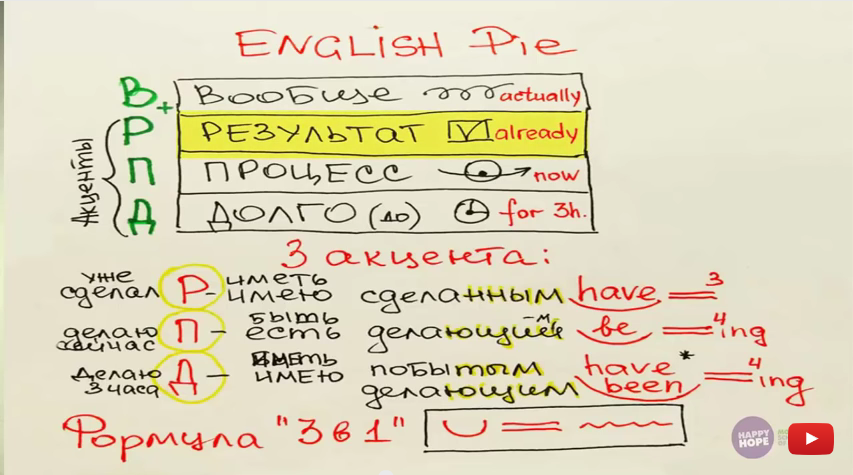 ENGLISH Pie
В+ Вообще actually
Р РЕЗУЛЬТАТ V already
П ПРОЦЕСС now
Д ДОЛГО (до) for 3h.
Акценты
3 акцента:
уже сделал Р - иметь имею сделанным have 3
делаю сейчас П - быть есть делающий -м be 4 ing
Делаю 3 часа Д - иметь имею побытым делающим have been * 4 ing
Формула "3 в 1"
HAPPY HOPE